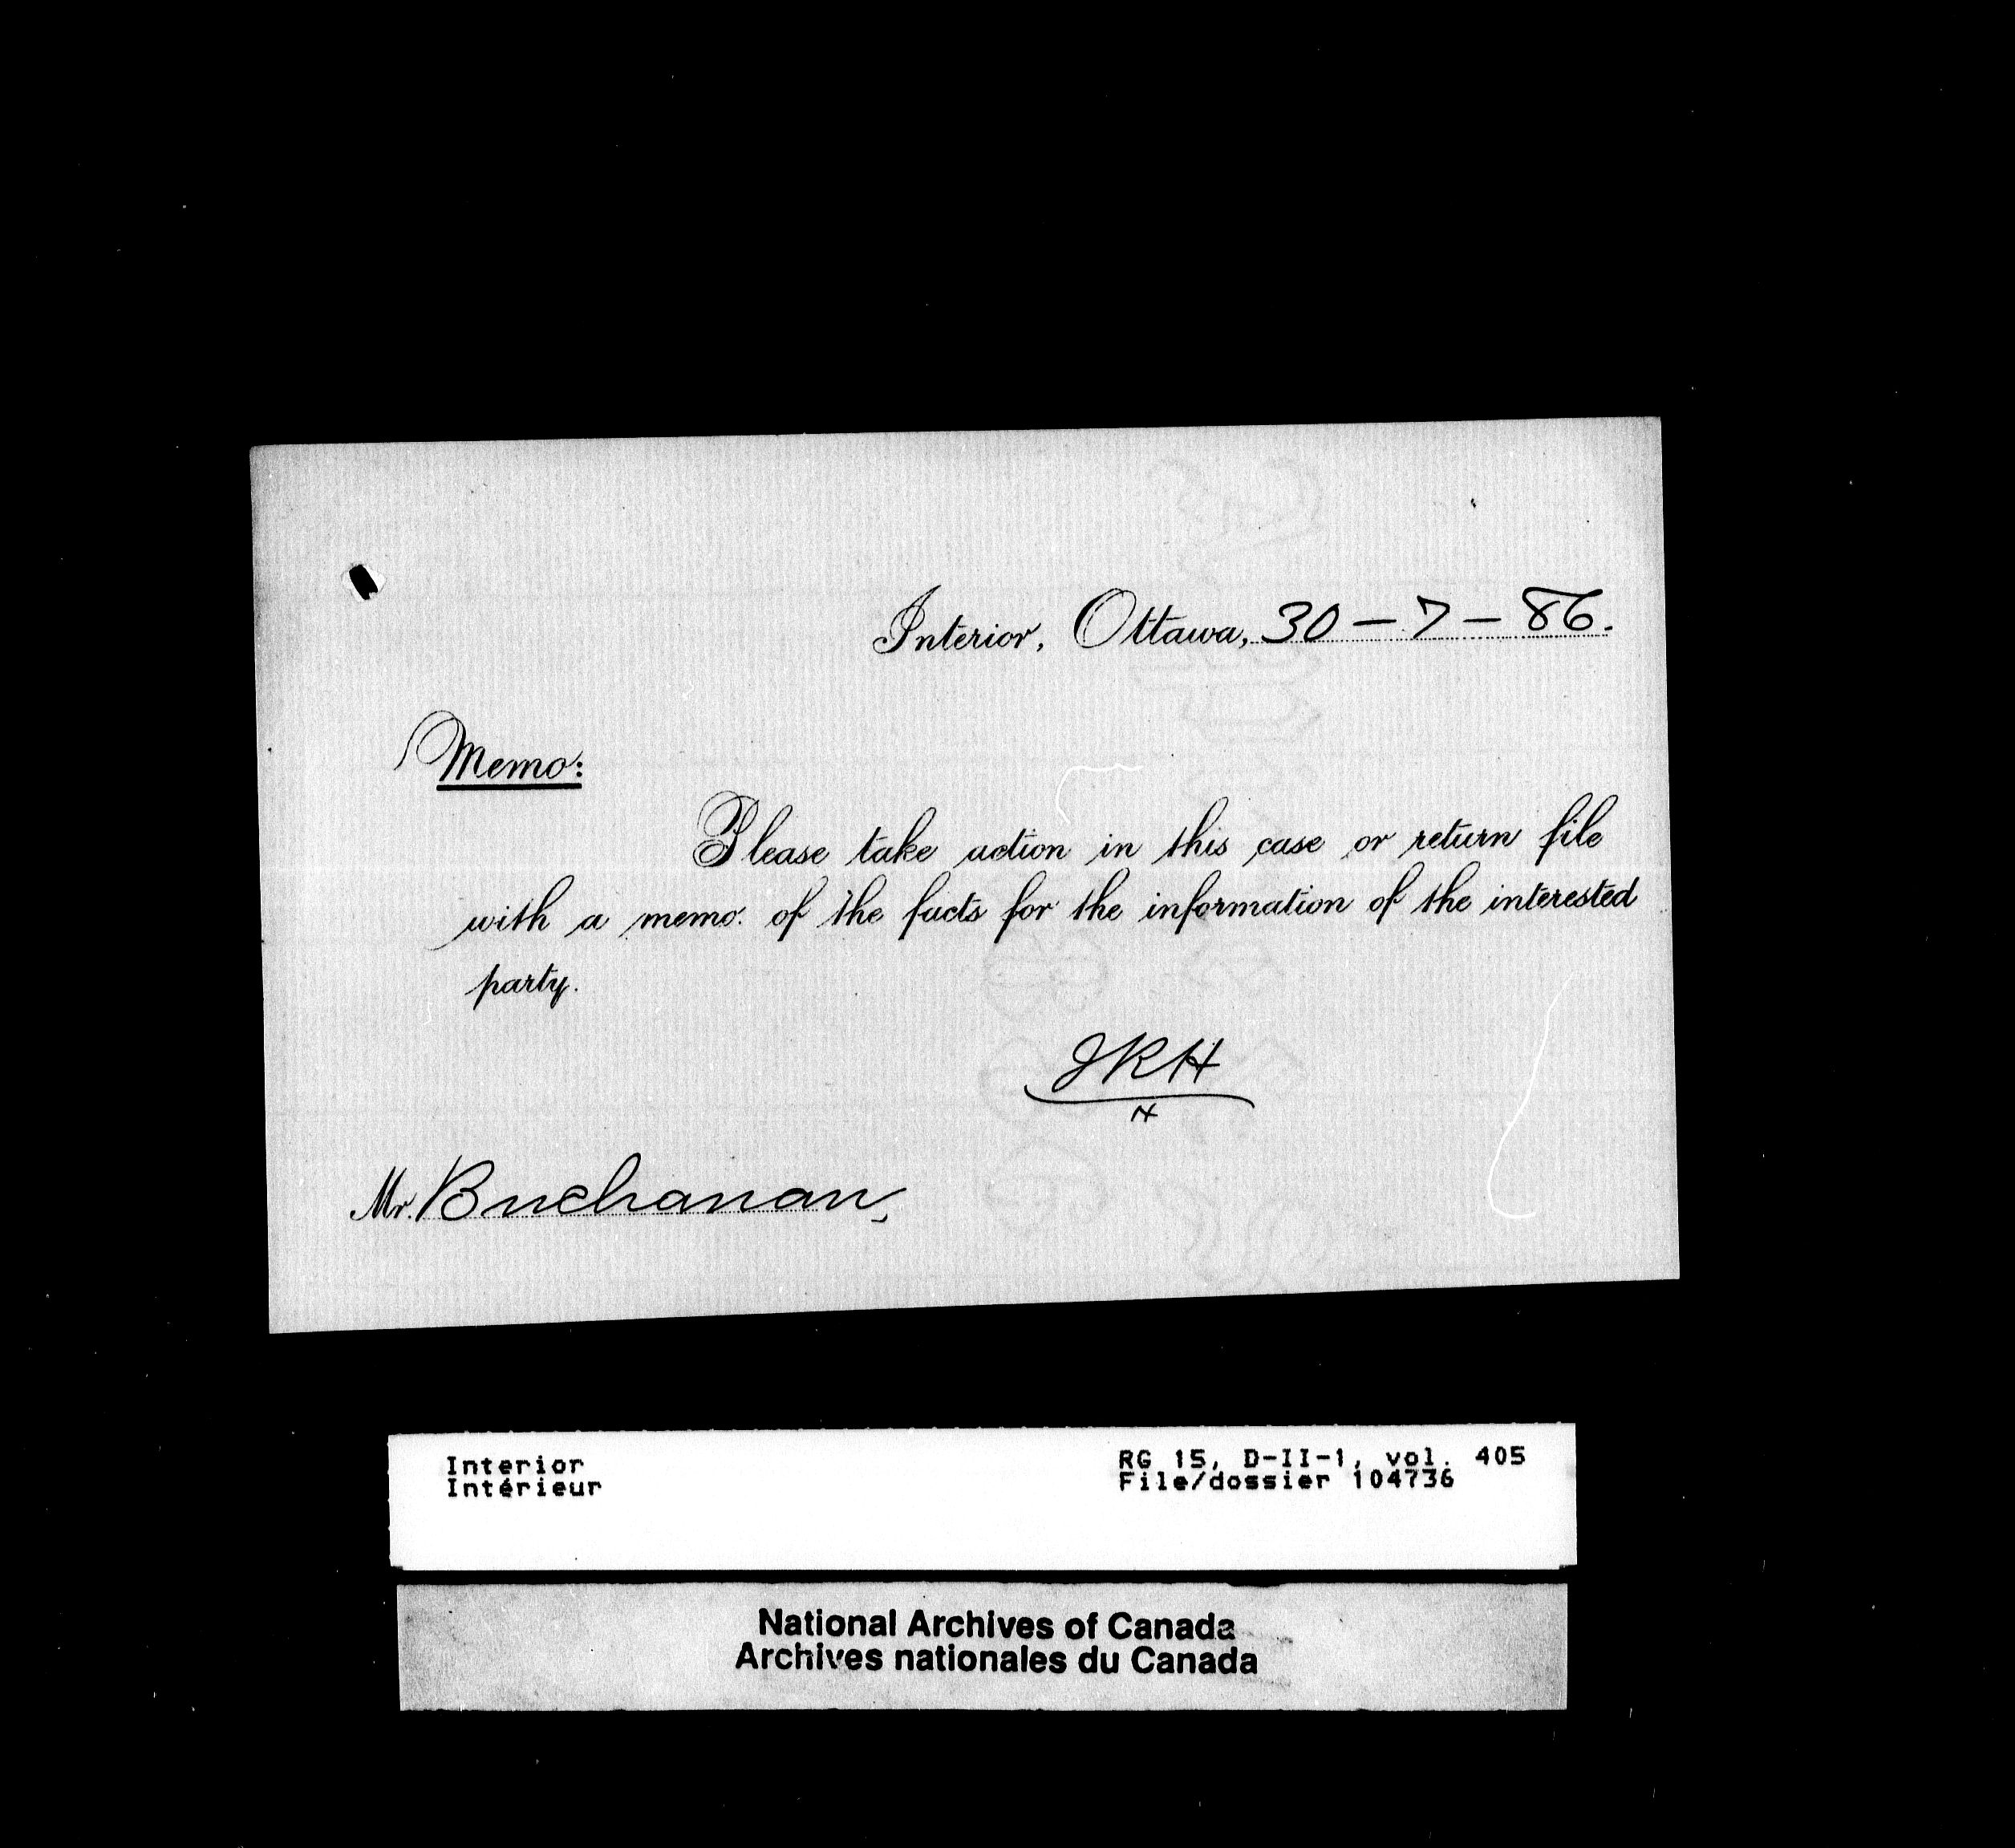 Interior, Ottawa, 30 – 7 – 86.
Memo:
Please take action in this case or return file
with a memo. of the facts for the information of the interested
party.
JRH
Mr. Buchanan,
Interior
Intérieur
RG 15, D-II-1, vol. 405
File/dossier 104736
National Archives of Canada
Archives nationales du Canada